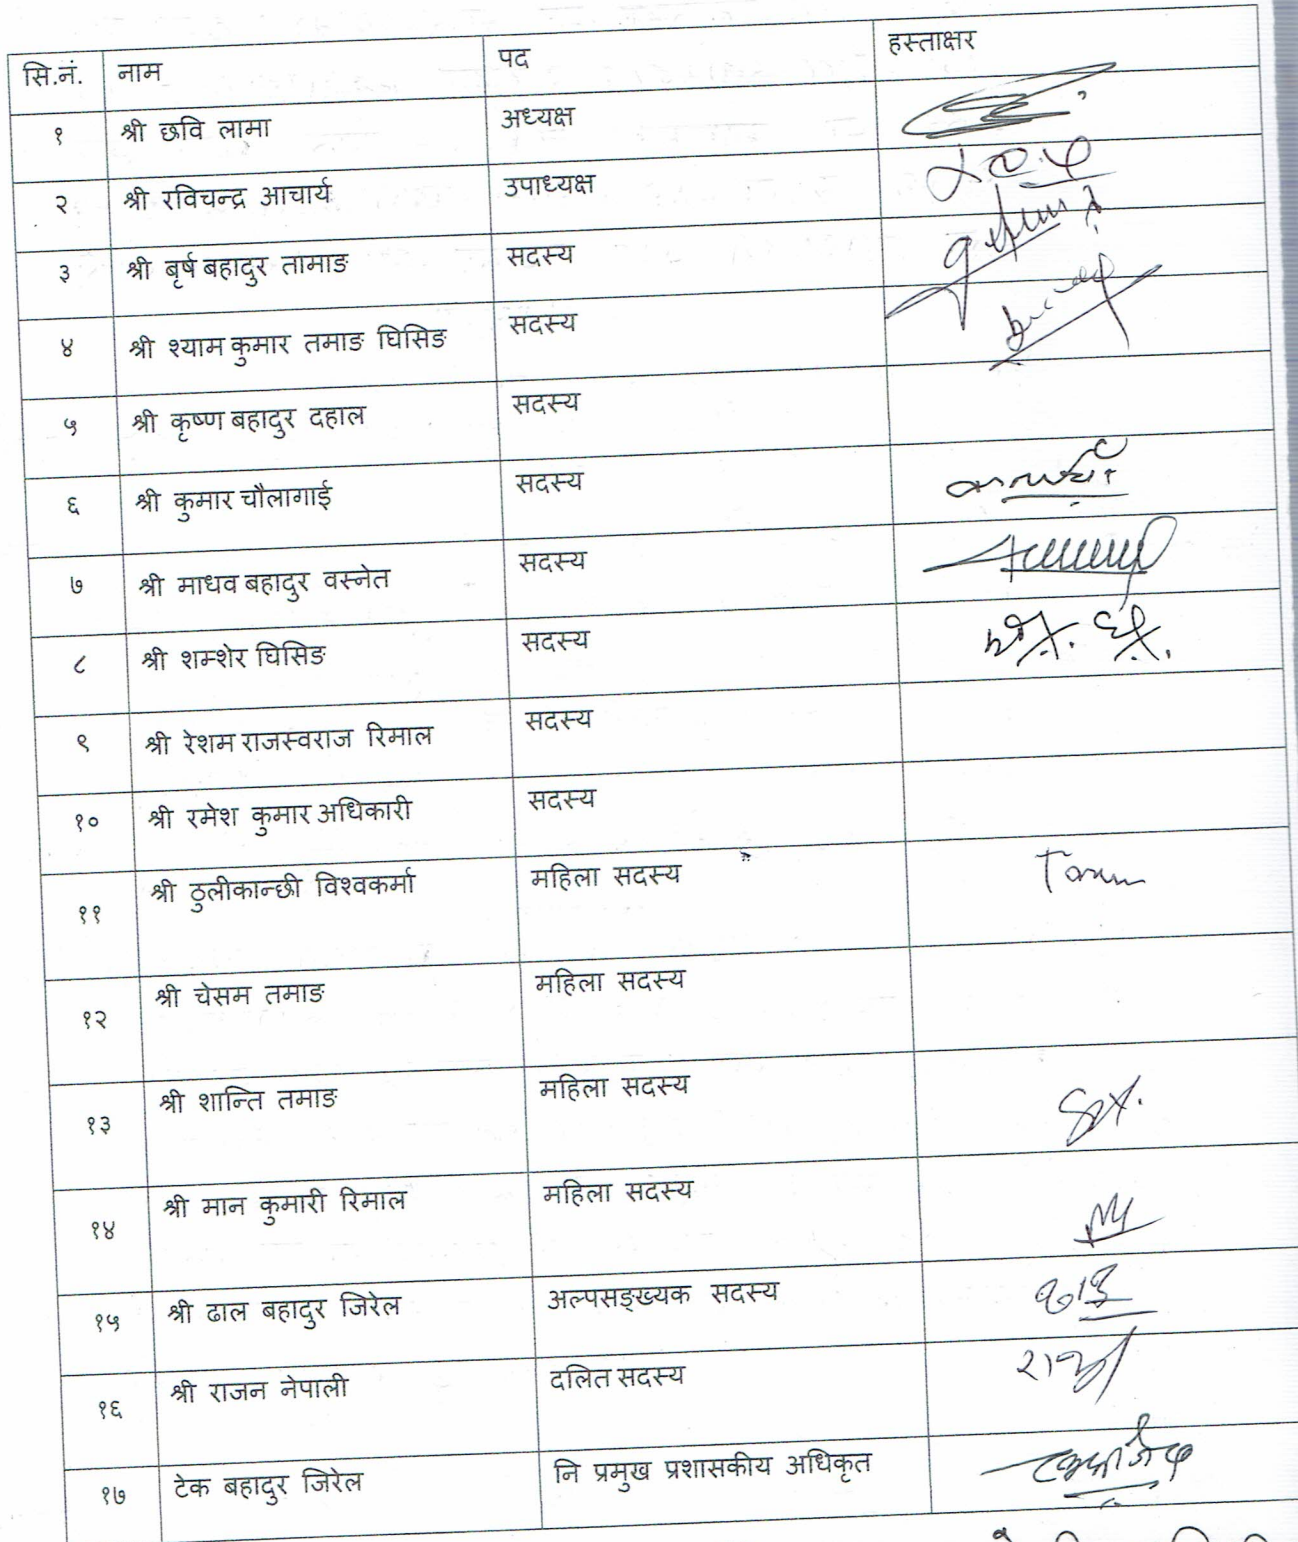 सि.नं. नाम पद हस्ताक्षर
१ श्री छवि लामा अध्यक्ष
२ श्री रविचन्द्र आचार्य उपाध्यक्ष
३ श्री बृर्ष बहादुर तामाङ सदस्य
४ श्री श्याम कुमार तमाङ घिसिङ सदस्य
५ श्री कृष्ण बहादुर दहाल सदस्य
६ श्री कुमार चौलागाई सदस्य
७ श्री माधव बहादुर वस्नेत सदस्य
८ श्री शम्शेर घिसिङ सदस्य
९ श्री रेशम राजस्वराज रिमाल सदस्य
१० श्री रमेश कुमार अधिकारी सदस्य
११ श्री ठुलीकान्छी विश्वकर्मा महिला सदस्य
१२ श्री चेसम तमाङ महिला सदस्य
१३ श्री शान्ति तमाङ महिला सदस्य
१४ श्री मान कुमारी रिमाल महिला सदस्य
१५ श्री ढाल बहादुर जिरेल अल्पसङ्ख्यक सदस्य
१६ श्री राजन नेपाली दलित सदस्य
१७ टेक बहादुर जिरेल नि प्रमुख प्रशासकीय अधिकृत